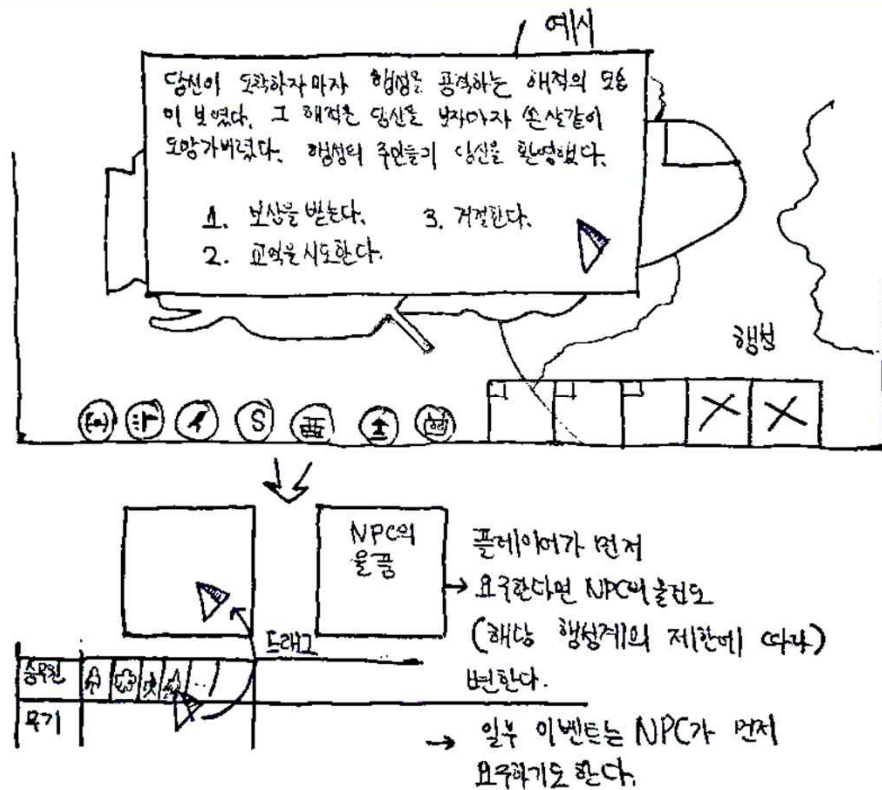 예시
당신이 도착하자마자 행성을 공격하는 해적의 모습
이 보였다. 그 해적은 당신을 보자마자 쏜살같이
도망가버렸다. 행성의 주민들이 당신을 환영했다.
1. 보상을 받는다. 3. 거절한다.
2. 교역을시도한다.
행성
S
NPC의
물품
드래그
승무원
무기
플레이어가 먼저
요구한다면 NPC의 물건도
(해당 행성계의 제한에 따라)
변한다.
일부 이벤트는 NPC가 먼저
요구하기도 한다.